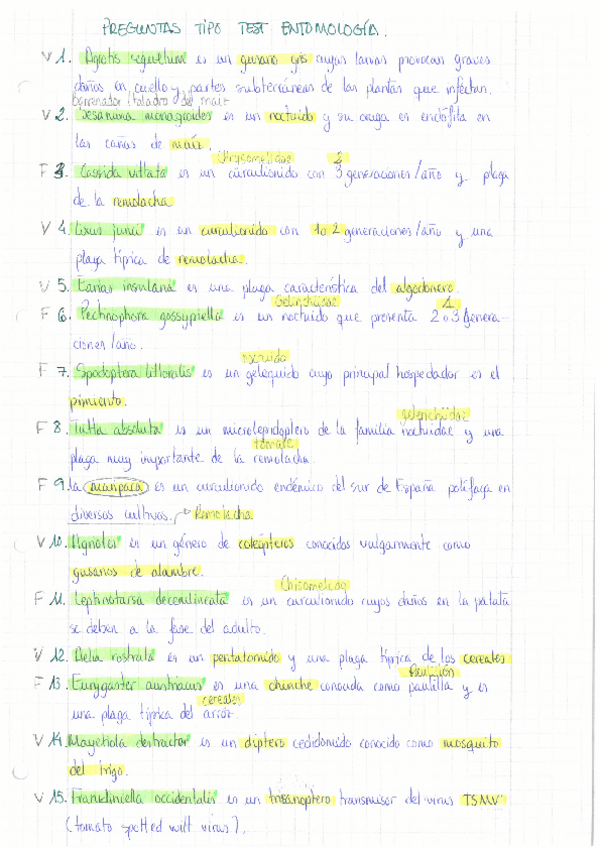 PREGUNTAS TIPO TEST ENTOMOLOGÍA.
V 1. Agrotis seguetum es un gusano gris cuyas larvas provocan graves
daños en cuello y partes subterráneas de las plantas que infectan.
barrenador (taladro) del maiz
V 2. Sesamia nonagroides es un noctuido y su oruga es endófita en
las cañas de maíz.
Chrysomelidae 2
F 3. Cassida vittata es un curculionido con 3 generaciones/año y plaga
de la remolacha
V 4. Lixus junci es un curculionido con 1 o 2 generaciones/año y una
plaga típica de remolacha.
V 5. Earias insulana es una plaga característica del algodonero.
Gelechiidae 1
F 6. Pectinophora gossypiella es un noctuido que presenta 2 o 3 genera-
ciones/año.
noctuido
F 7. Spodoptera littoralis es un geléquido cuyo principal hospedador es el
pimiento.
gelenchiidae
F 8. Tutta absoluta es un microlepidoptero de la familia noctuidae y una
tomate
plaga muy importante de la remolacha.
F 9. la es un curculionido endémico del sur de España polífaga en
diversos cultivos. Remolacha
V 10. Agriotes es un género de coleópteros conocidos vulgarmente como
gusanos de alambre.
F 11. Leptinotarsa decemlineata es un curculionido cuyos daños en la patata
se deben a la fase del adulto.
V 12. Aelia rostrata es un pentatomido y una plaga típica de los cereales
F 13. Eurygaster austriacus es una chinche conocida como paulilla y es
cereales
una plaga típica del arroz.
V 14. Mayetiola destructor es un díptero cecidómido conocido como mosquito
del trigo.
V 15. Frankliniella occidentalis es un trisanóptero transmisor del virus TSWV
(tomato spotted wilt virus).